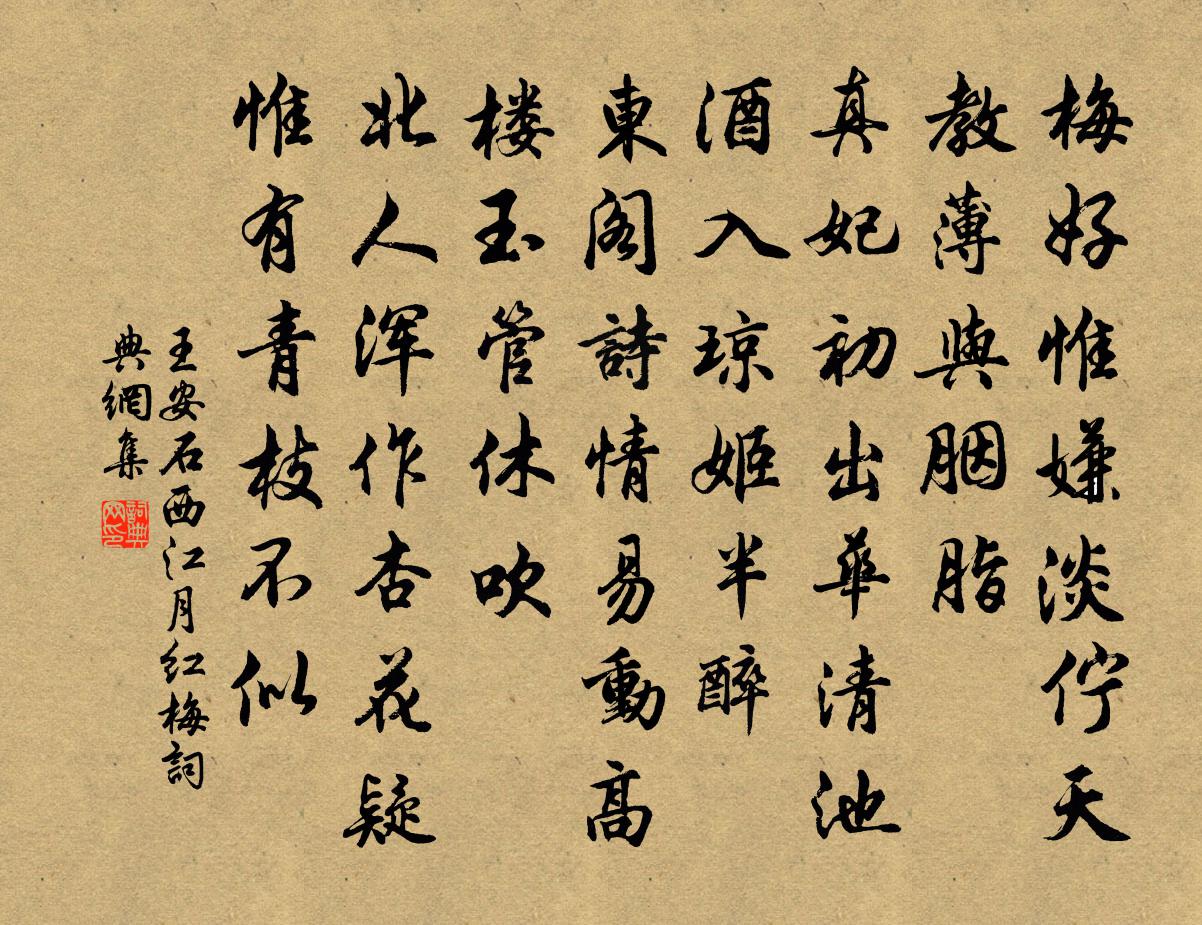 梅好惟嫌淡伫天
教薄與胭脂
真妃初出華清池
酒入琼姬半醉
東阁詩情易動高
楼玉管休吹
北人浑作杏花疑
惟有青枝不似
王安石西江月红梅詞
典網集
詞典网印